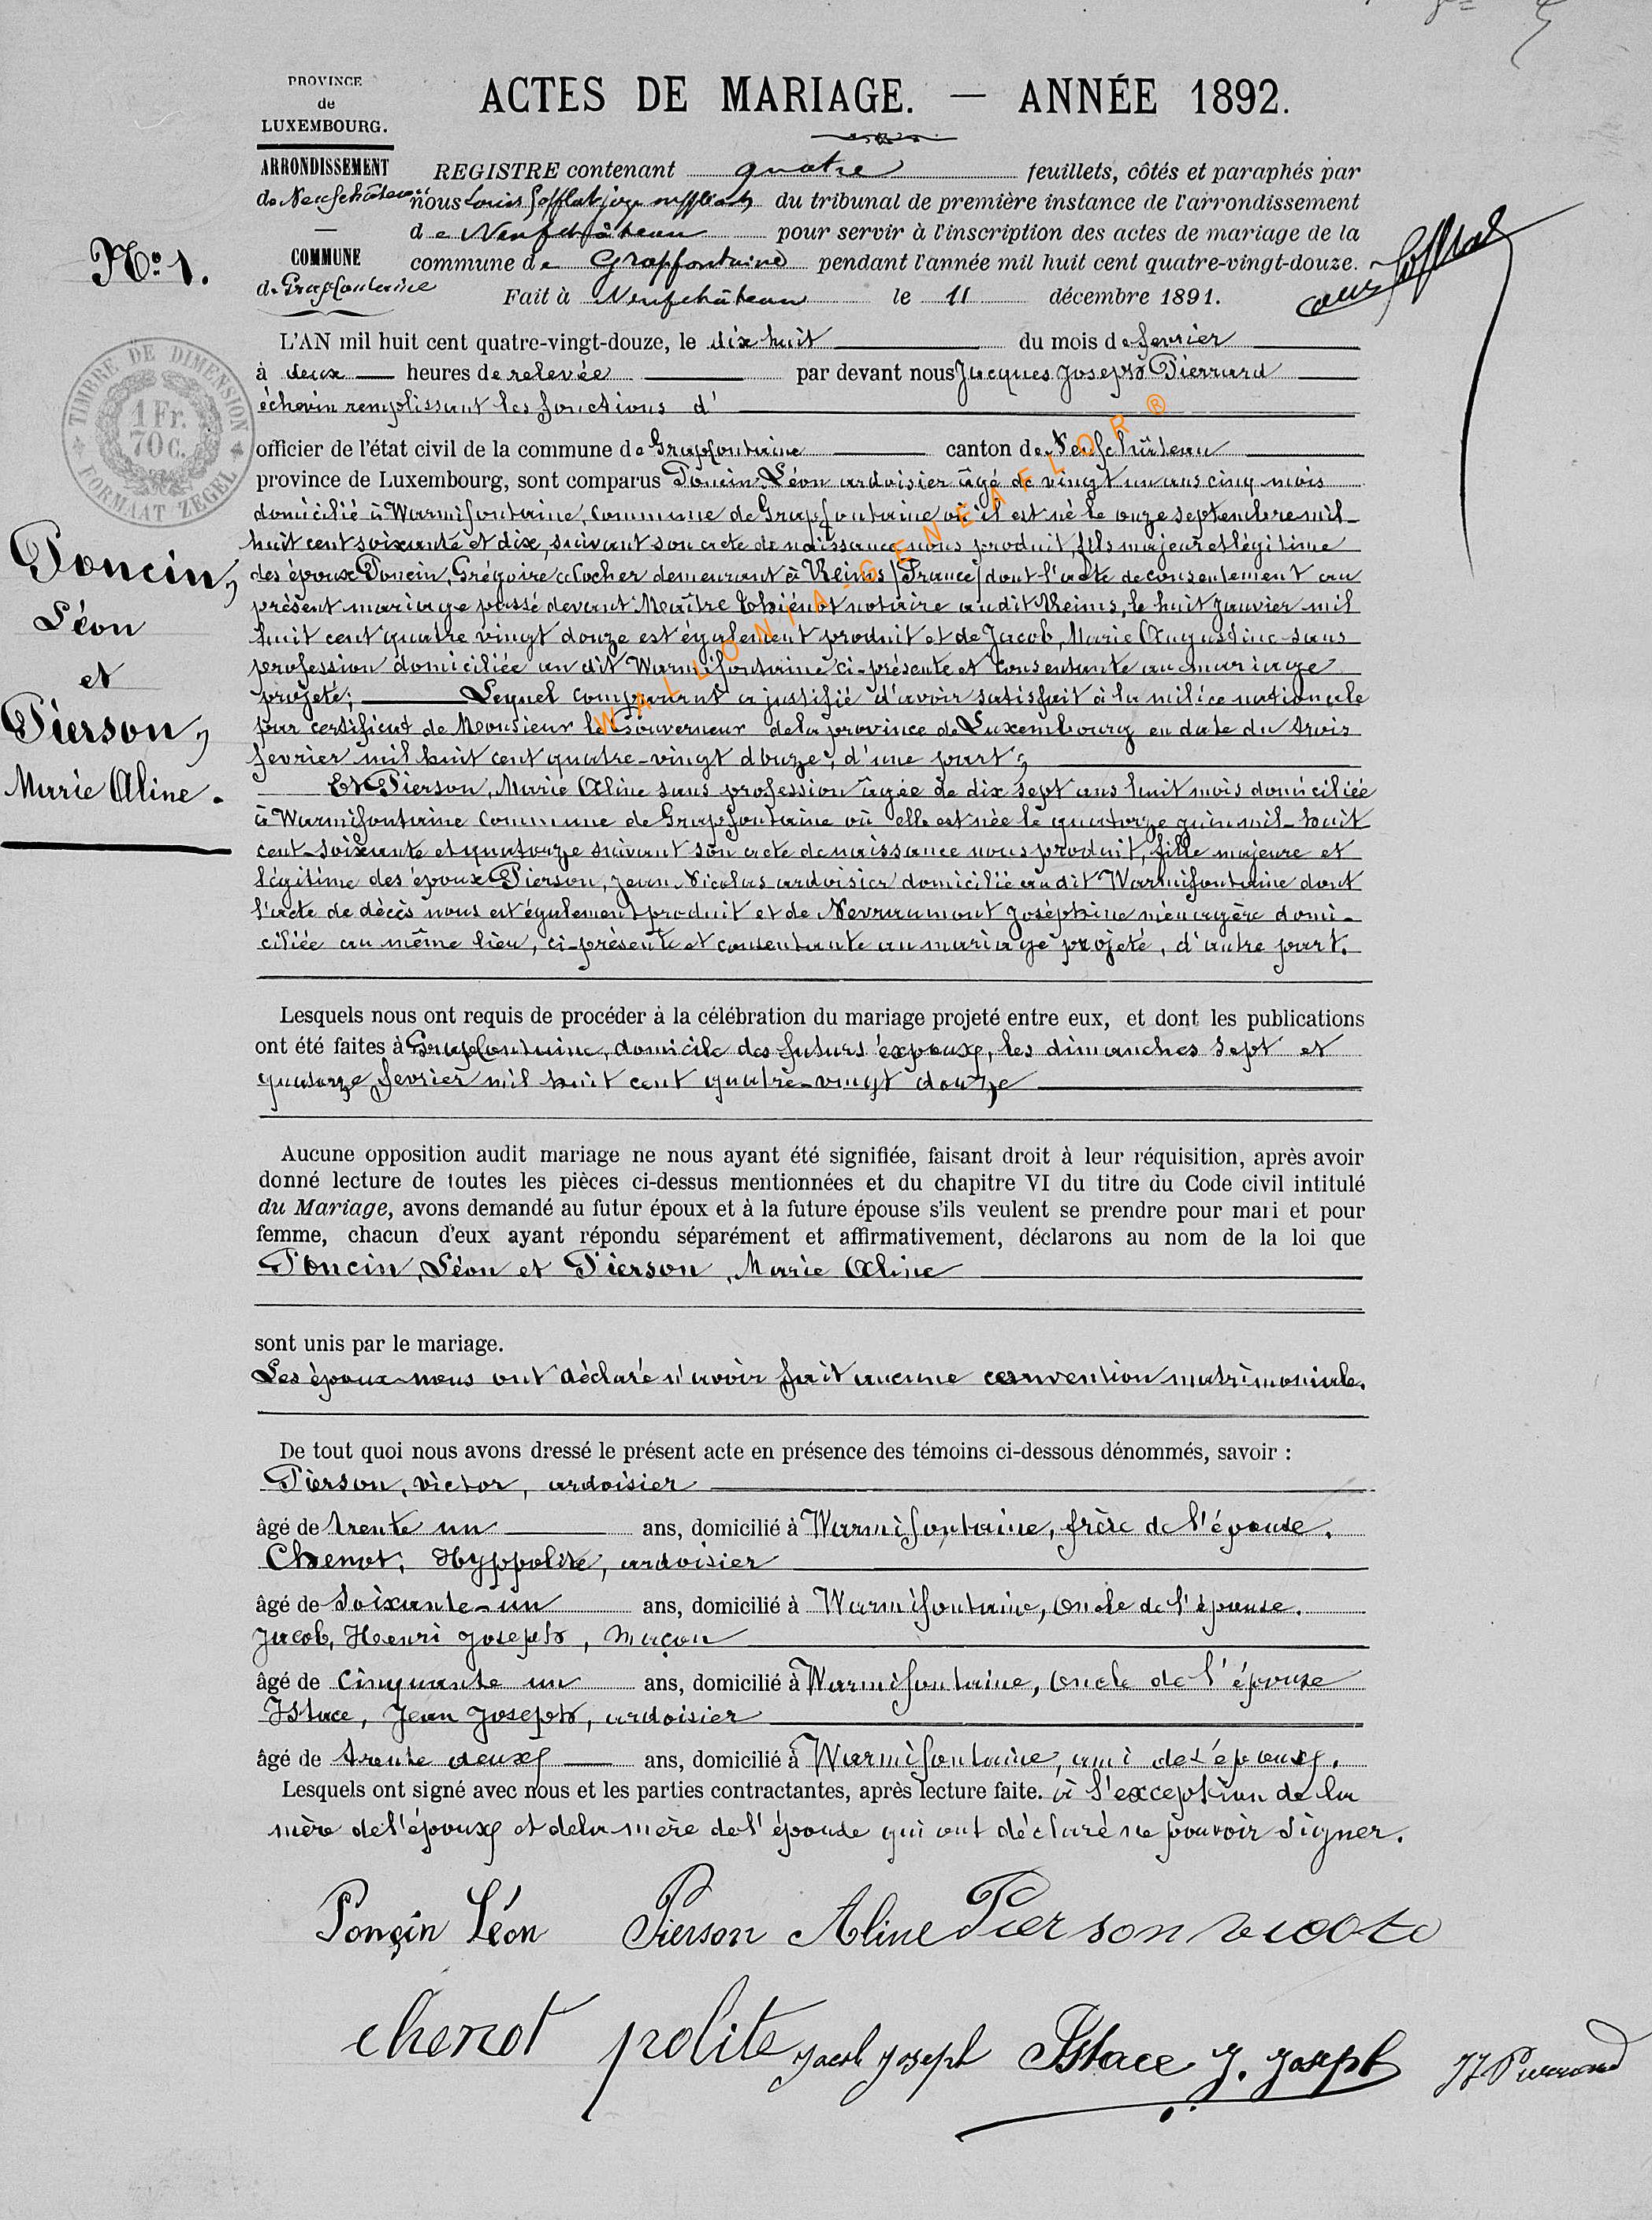 PROVINCE
de
LUXEMBOURG.
ACTES DE MARIAGE. — ANNÉE 1892.
ARRONDISSEMENT
de Neufchâteau
COMMUNE
de Grapfontaine
REGISTRE contenant quatre feuillets, côtés et paraphés par
nous Louis juge suppléant du tribunal de première instance de l'arrondissement
de Neufchâteau pour servir à l'inscription des actes de mariage de la
commune de Grapfontaine pendant l'année mil huit cent quatre-vingt-douze.
Fait à Neufchâteau le 11 décembre 1891.
No. 1.
TIMBRE DE DIMENSION
1 Fr.
70 C.
FORMAAT ZEGEL
L'AN mil huit cent quatre-vingt-douze, le dix huit du mois de fevrier
à deux heures de relevée par devant nous Jacques Joseph Pierrard
échevin remplissant les fonctions d'
officier de l'état civil de la commune de Grapfontaine canton de Neufchâteau
province de Luxembourg, sont comparus Poncin, Léon ardoisier âgé de vingt un ans cinq mois
domicilié à Warmifontaine, commune de Grapfontaine où il est né le onze septembre mil-
huit cent soixante et dix, suivant son acte de naissance nous produit, fils majeur et légitime
des époux Poncin, Grégoire cocher demeurant à Reims (France) dont l'acte de consentement au
présent mariage passé devant Maître Thiénot notaire au dit Reims, le huit janvier mil
huit cent quatre vingt douze est également produit et de Jacob, Marie Augustine sans
profession domiciliée au dit Warmifontaine ci-présente et consentante au mariage
projeté; Lequel comparant a justifié d'avoir satisfait à la milice nationale
par certificat de Monsieur le Gouverneur de la province de Luxembourg en date du trois
fevrier mil huit cent quatre-vingt douze, d'une part,
Et Pierson, Marie Aline sans profession âgée de dix sept ans huit mois domiciliée
à Warmifontaine commune de Grapfontaine où elle est née le quatorze juin mil-huit
cent-soixante et quatorze suivant son acte de naissance nous produit, fille majeure et
légitime des époux Pierson, Jean Nicolas ardoisier domicilié au dit Warmifontaine dont
l'acte de décès nous est également produit et de Nevraumont Joséphine ménagère domi-
ciliée au même lieu, ci-présente et consentante au mariage projeté, d'autre part.
Poncin,
Léon
et
Pierson,
Marie Aline.
WALLONIA-GENEAFLOR ®
Lesquels nous ont requis de procéder à la célébration du mariage projeté entre eux, et dont les publications
ont été faites à Grapfontaine, domicile des futurs époux, les dimanches sept et
quatorze fevrier mil huit cent quatre-vingt douze
Aucune opposition audit mariage ne nous ayant été signifiée, faisant droit à leur réquisition, après avoir
donné lecture de toutes les pièces ci-dessus mentionnées et du chapitre VI du titre du Code civil intitulé
du Mariage, avons demandé au futur époux et à la future épouse s'ils veulent se prendre pour mari et pour
femme, chacun d'eux ayant répondu séparément et affirmativement, déclarons au nom de la loi que
Poncin, Léon et Pierson, Marie Aline
sont unis par le mariage.
Les époux nous ont déclaré n'avoir fait aucune convention matrimoniale.
De tout quoi nous avons dressé le présent acte en présence des témoins ci-dessous dénommés, savoir :
Pierson, victor, ardoisier
âgé de trente un ans, domicilié à Warmifontaine, frère de l'épouse.
Chenot, Hyppolite, ardoisier
âgé de soixante-un ans, domicilié à Warmifontaine, oncle de l'épouse.
Jacob, Henri Joseph, maçon
âgé de cinquante un ans, domicilié à Warmifontaine, oncle de l'épouse
Istace, Jean Joseph, ardoisier
âgé de trente deux ans, domicilié à Warmifontaine, ami de l'époux.
Lesquels ont signé avec nous et les parties contractantes, après lecture faite. à l'exception de la
mère de l'époux et de la mère de l'épouse qui ont déclaré ne pouvoir signer.
Ponçin Léon Pierson Aline Pierson
chenot polite Jacob Joseph Istace J. Joseph JJ Pierrard